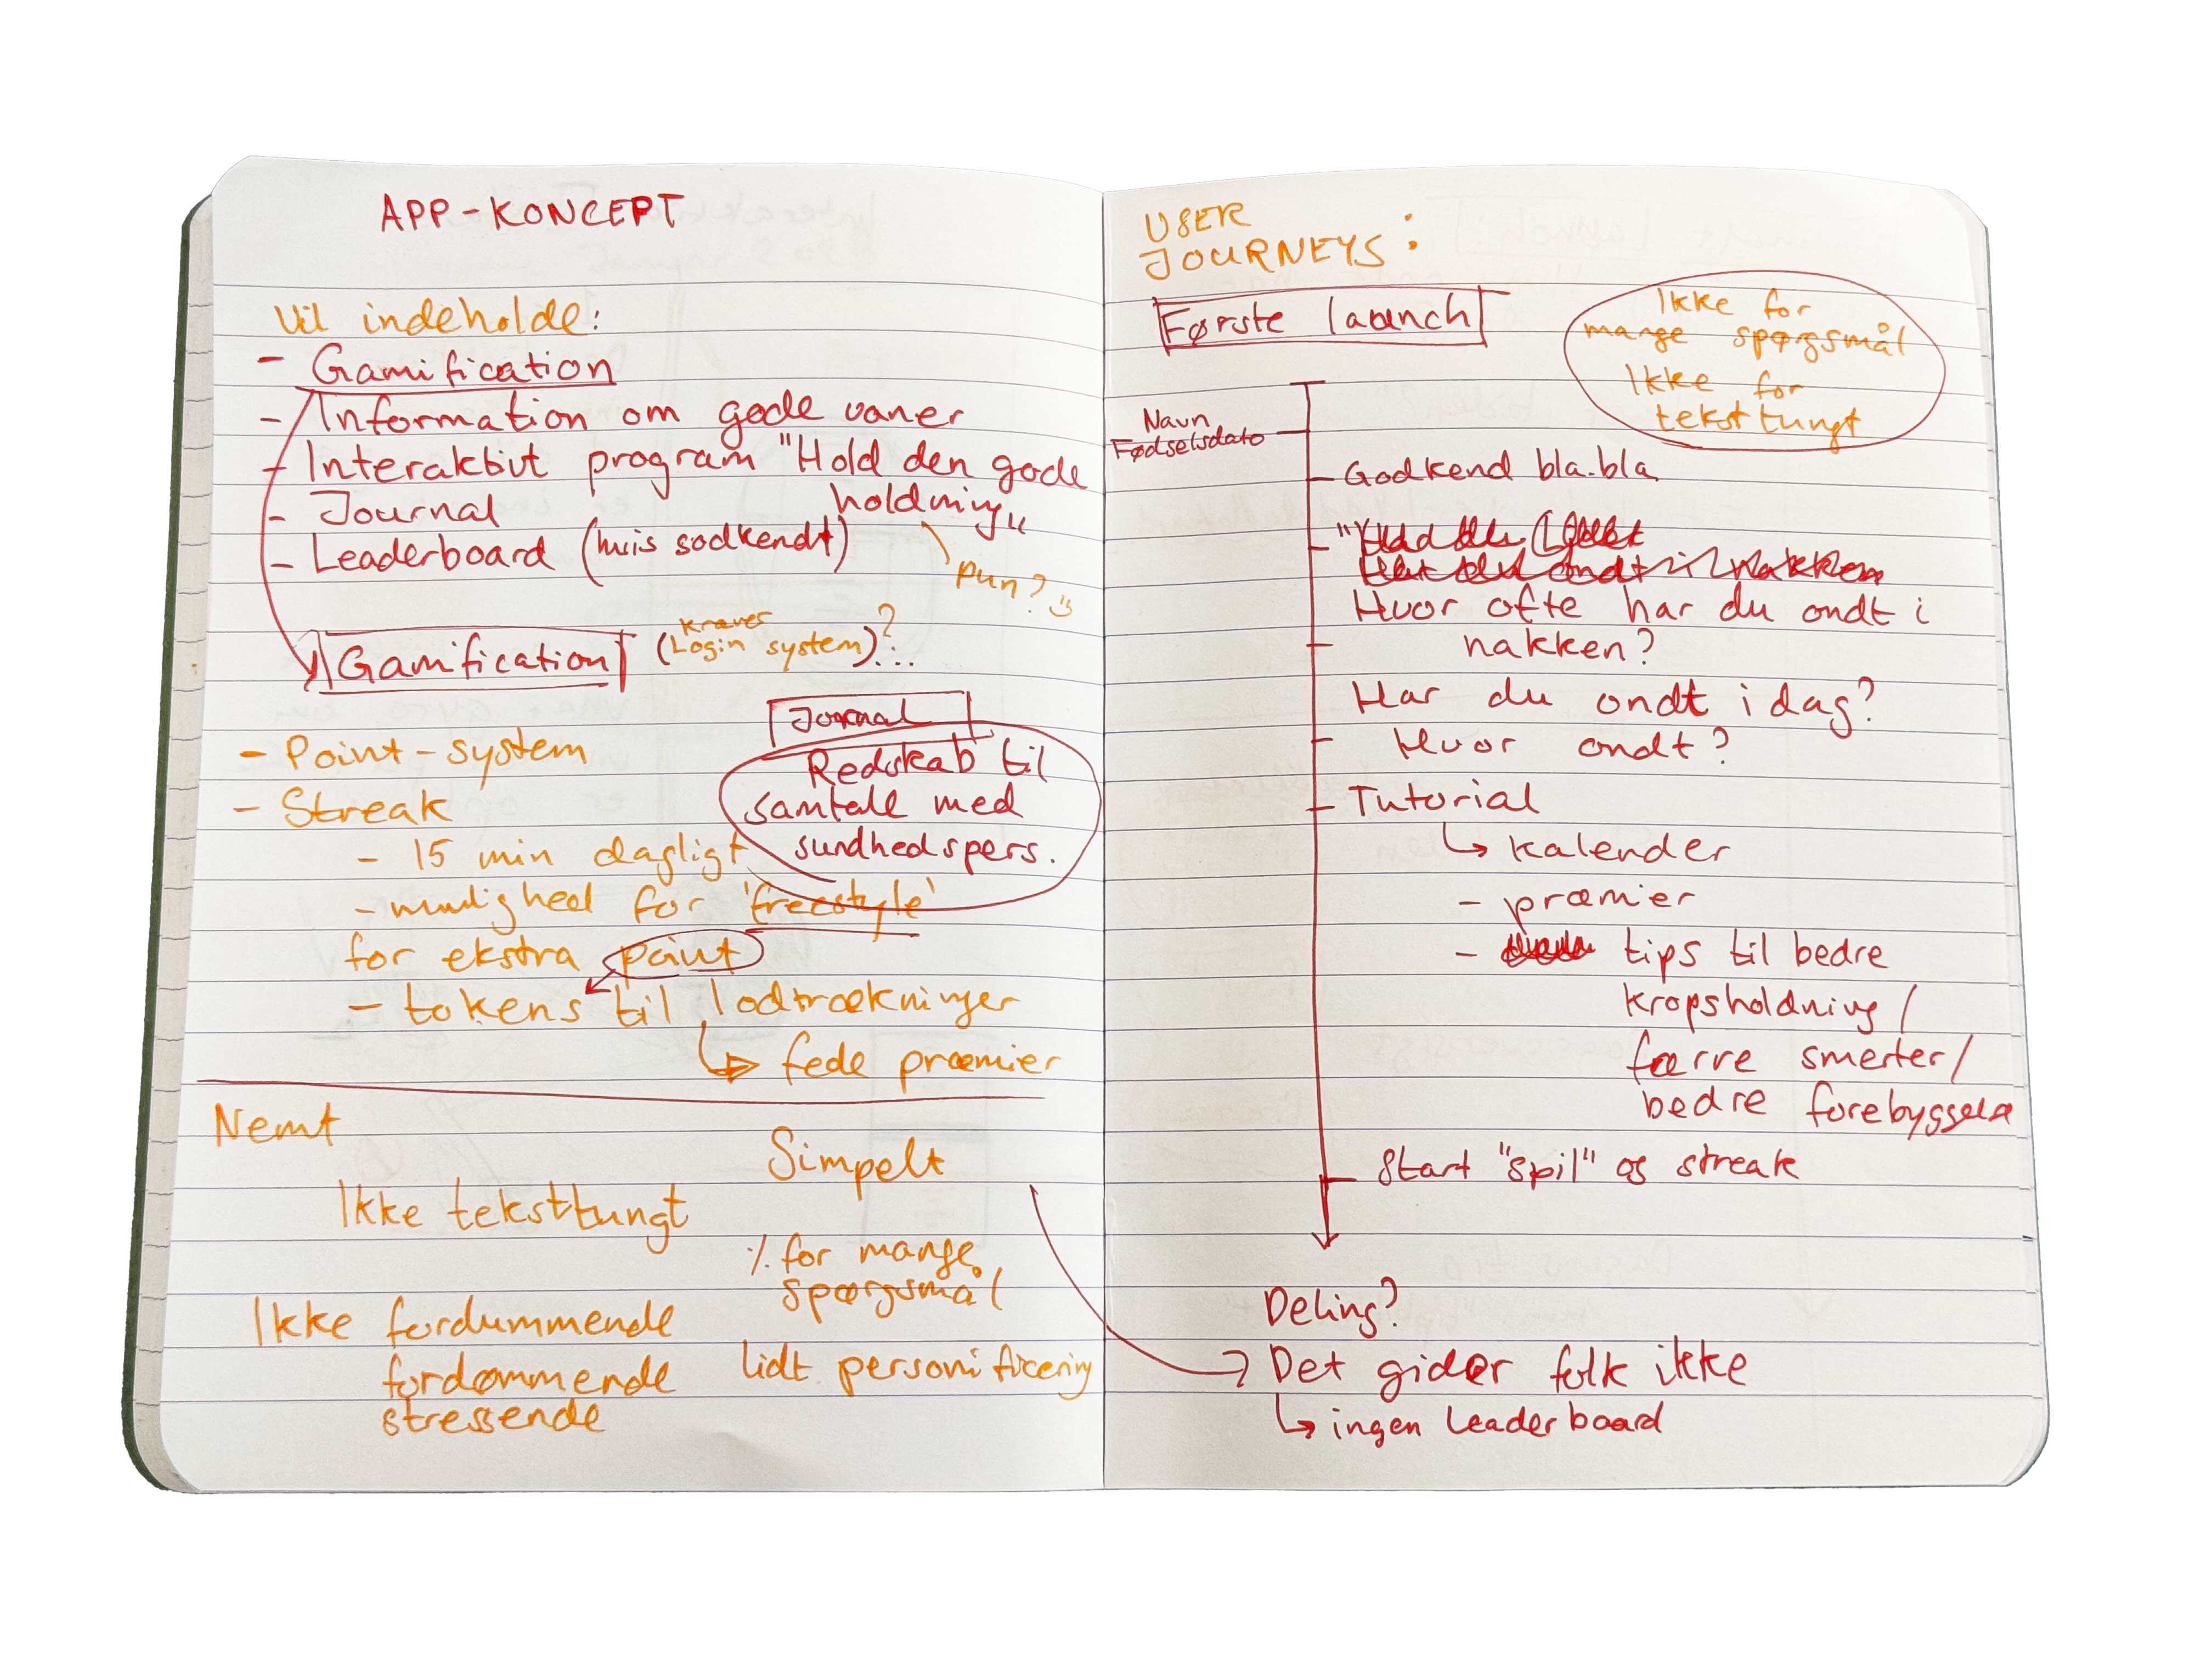 APP-KONCEPT
Vil indeholde:
- Gamification
- Information om gode vaner
- Interaktivt program "Hold den gode
holdning"
- Journal
- Leaderboard (hvis godkendt)
pun?
Gamification (kræver
Login system)?...
- Point-system
- Streak
- 15 min dagligt
- mulighed for 'freestyle'
for ekstra point
- tokens til lodtrækninger
↳ fede præmier
Journal
Redskab til
samtale med
sundhedspers.
Nemt
Simpelt
Ikke teksttungt
% for mange
spørgsmål
Ikke fordummende
fordømmende
stressende
lidt personificering
USER
JOURNEYS:
Første launch
Ikke for
mange spørgsmål
Ikke for
teksttungt
Navn
Fødselsdato
Godkend bla.bla
Hvor ofte har du ondt i
nakken?
Har du ondt i dag?
Hvor ondt?
Tutorial
↳ kalender
- præmier
- tips til bedre
kropsholdning/
færre smerter/
bedre forebyggelse
Start "spil" og streak
Deling?
Det gider folk ikke
↳ ingen leaderboard